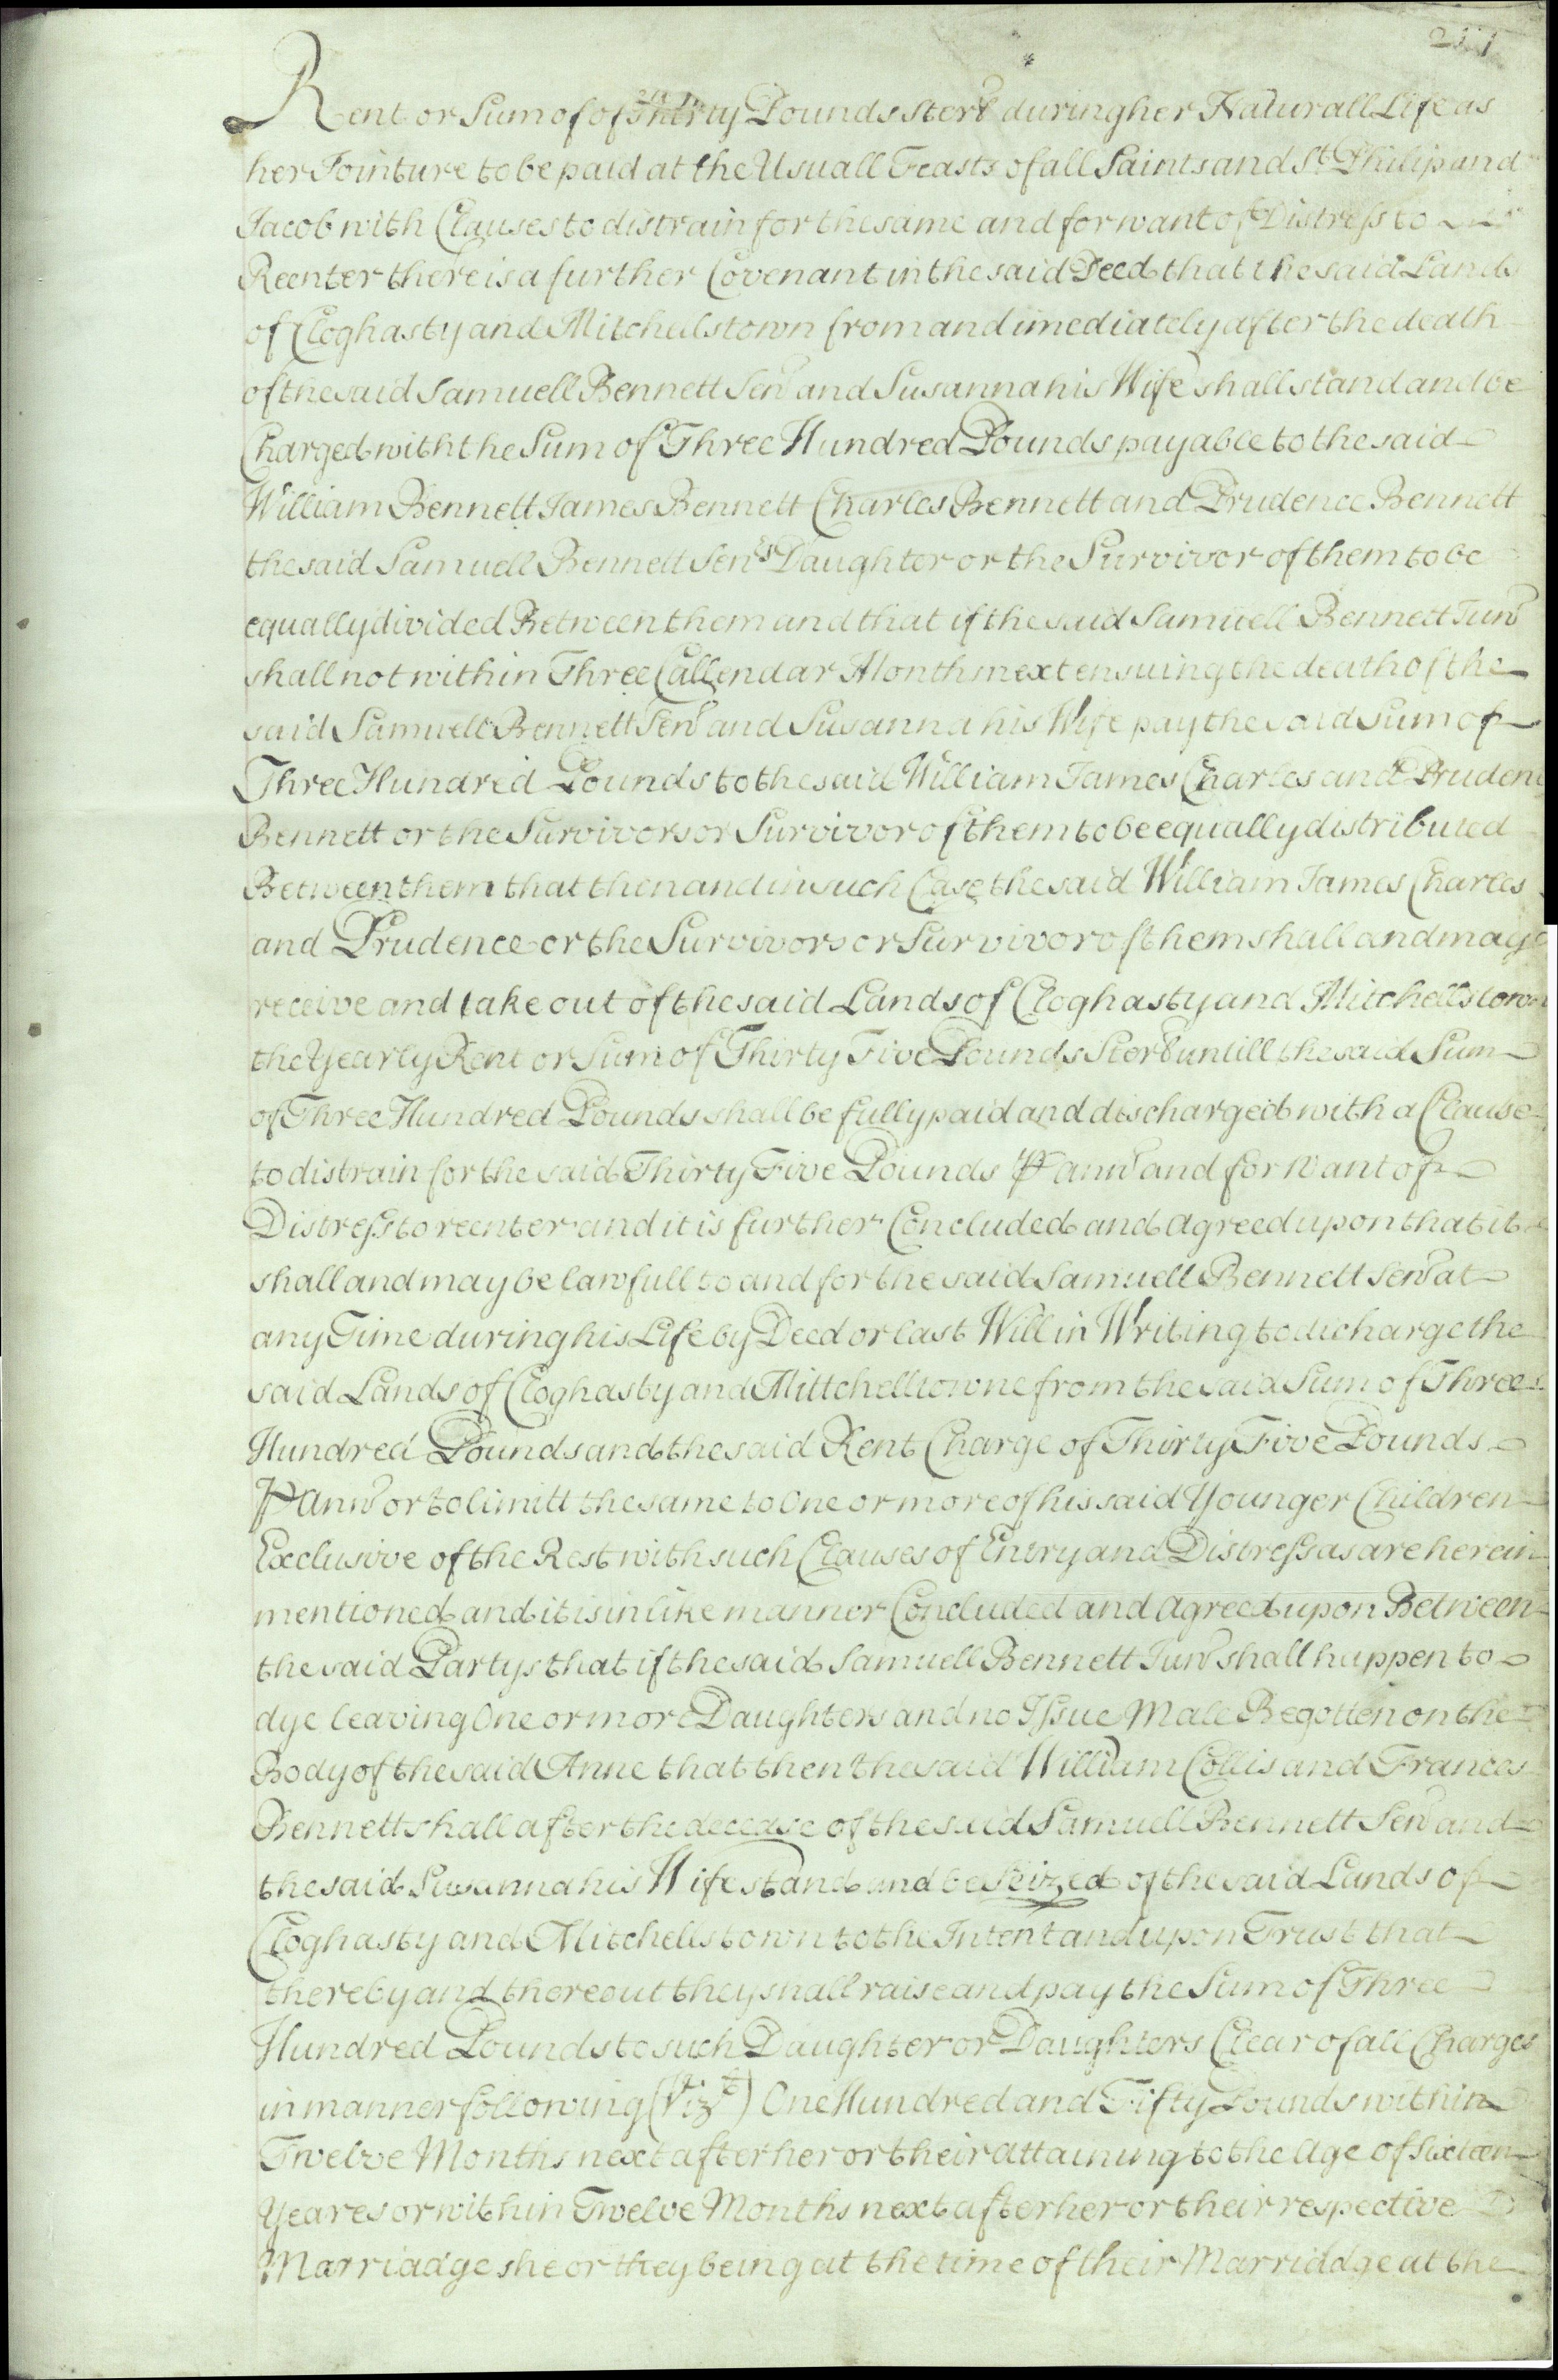 211
Rent or Sum of of Thirty Pounds Sterl during her Naturall Life as
her Jointure to be paid at the Usuall Feasts of all Saints and St. Philip and
Jacob with Clauses to distrain for the same and for want of Distress to
Reenter there is a further Covenant in the said Deed that the said Lands
of Cloghasty and Mitchelstown from and imediately after the death
of the said Samuell Bennett Senr and Susanna his Wife shall stand and be
Charged with the Sum of Three Hundred Pounds payable to the said
William Bennett James Bennett Charles Bennett and Prudence Bennett
the said Samuell Bennett Senrs Daughter or the Survivor of them to be
equally divided Between them and that if the said Samuell Bennett Junr
shall not within Three Callendar Month next ensuing the death of the
said Samuell Bennett Senr and Susanna his Wife pay the said Sum of
Three Hundred Pounds to the said William James Charles and Prudence
Bennett or the Survivors or Survivor of them to be equally distributed
Between them that then and in such Case the said William James Charles
and Prudence or the Survivors or Survivor of them shall and may
receive and take out of the said Lands of Cloghasty and Mitchellstown
the Yearly Rent or Sum of Thirty Five Pounds Sterl untill the said Sum
of Three Hundred Pounds shall be fully paid and discharged with a Clause
to distrain for the said Thirty Five Pounds P annr and for Want of
Distress to reenter and it is further Concluded and Agreed upon that it
shall and may be lawfull to and for the said Samuell Bennett Senr at
any Time during his Life by Deed or last Will in Writing to dicharge the
said Lands of Cloghasty and Mittchelltowne from the said Sum of Three
Hundred Pounds and the said Rent Charge of Thirty Five Pounds
P Annr or to limitt the same to One or more of his said Younger Children
Exclusive of the Rest with such Clauses of Entry and Distress as are herein
mentioned and it is in like manner Concluded and Agreed upon Between
the said Partys that if the said Samuell Bennett Junr shall happen to
dye leaving One or more Daughters and no Issue Male Begotten on the
Body of the said Anne that then the said William Collis and Frances
Bennett shall after the decease of the said Samuell Bennett Senr and
the said Susanna his Wife stand and be Seized of the said Lands of
Cloghasty and Mitchellstown to the Intent and upon Trust that
thereby and thereout they shall raise and pay the Sum of Three
Hundred Pounds to such Daughter or Daughters Clear of all Charges
in manner following (Vizt) One Hundred and Fifty Pounds within
Twelve Months next after her or their attaining to the Age of Sixteen
Yeares or within Twelve Months next after her or their respective
Marriadge she or they being at the time of their Marriadge at the